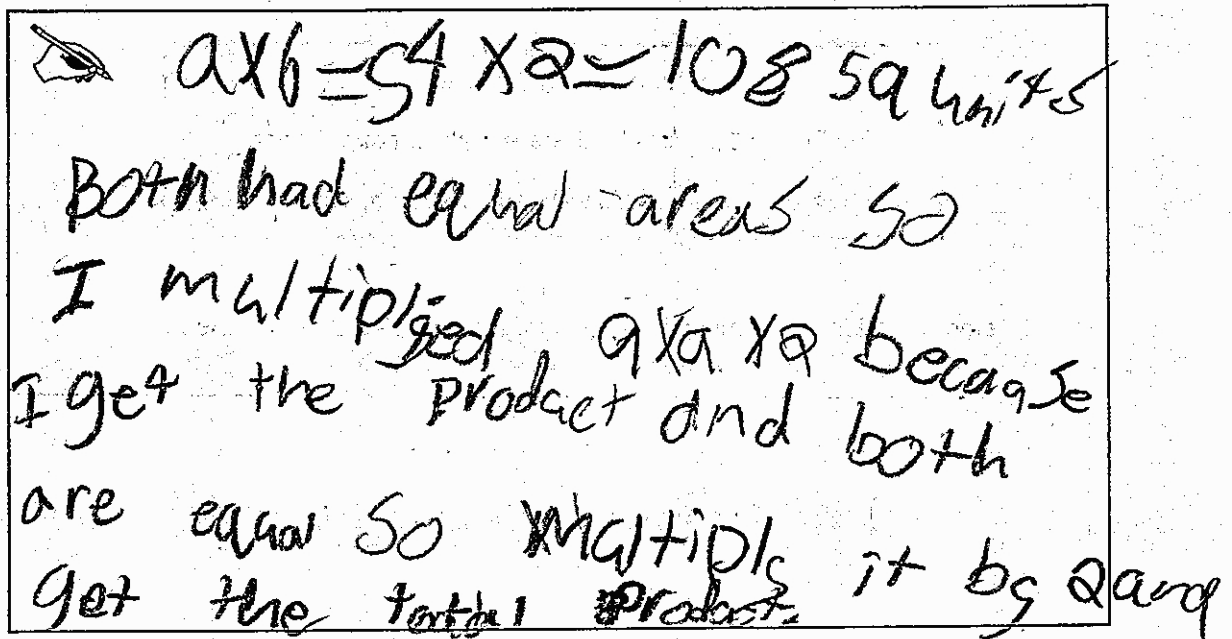 9x6=54 x2=108 sq units
Both had equal areas so
I multiplyed 9x9 x2 because
I get the product and both
are equal so multiply it by 2 and
get the tortal product.